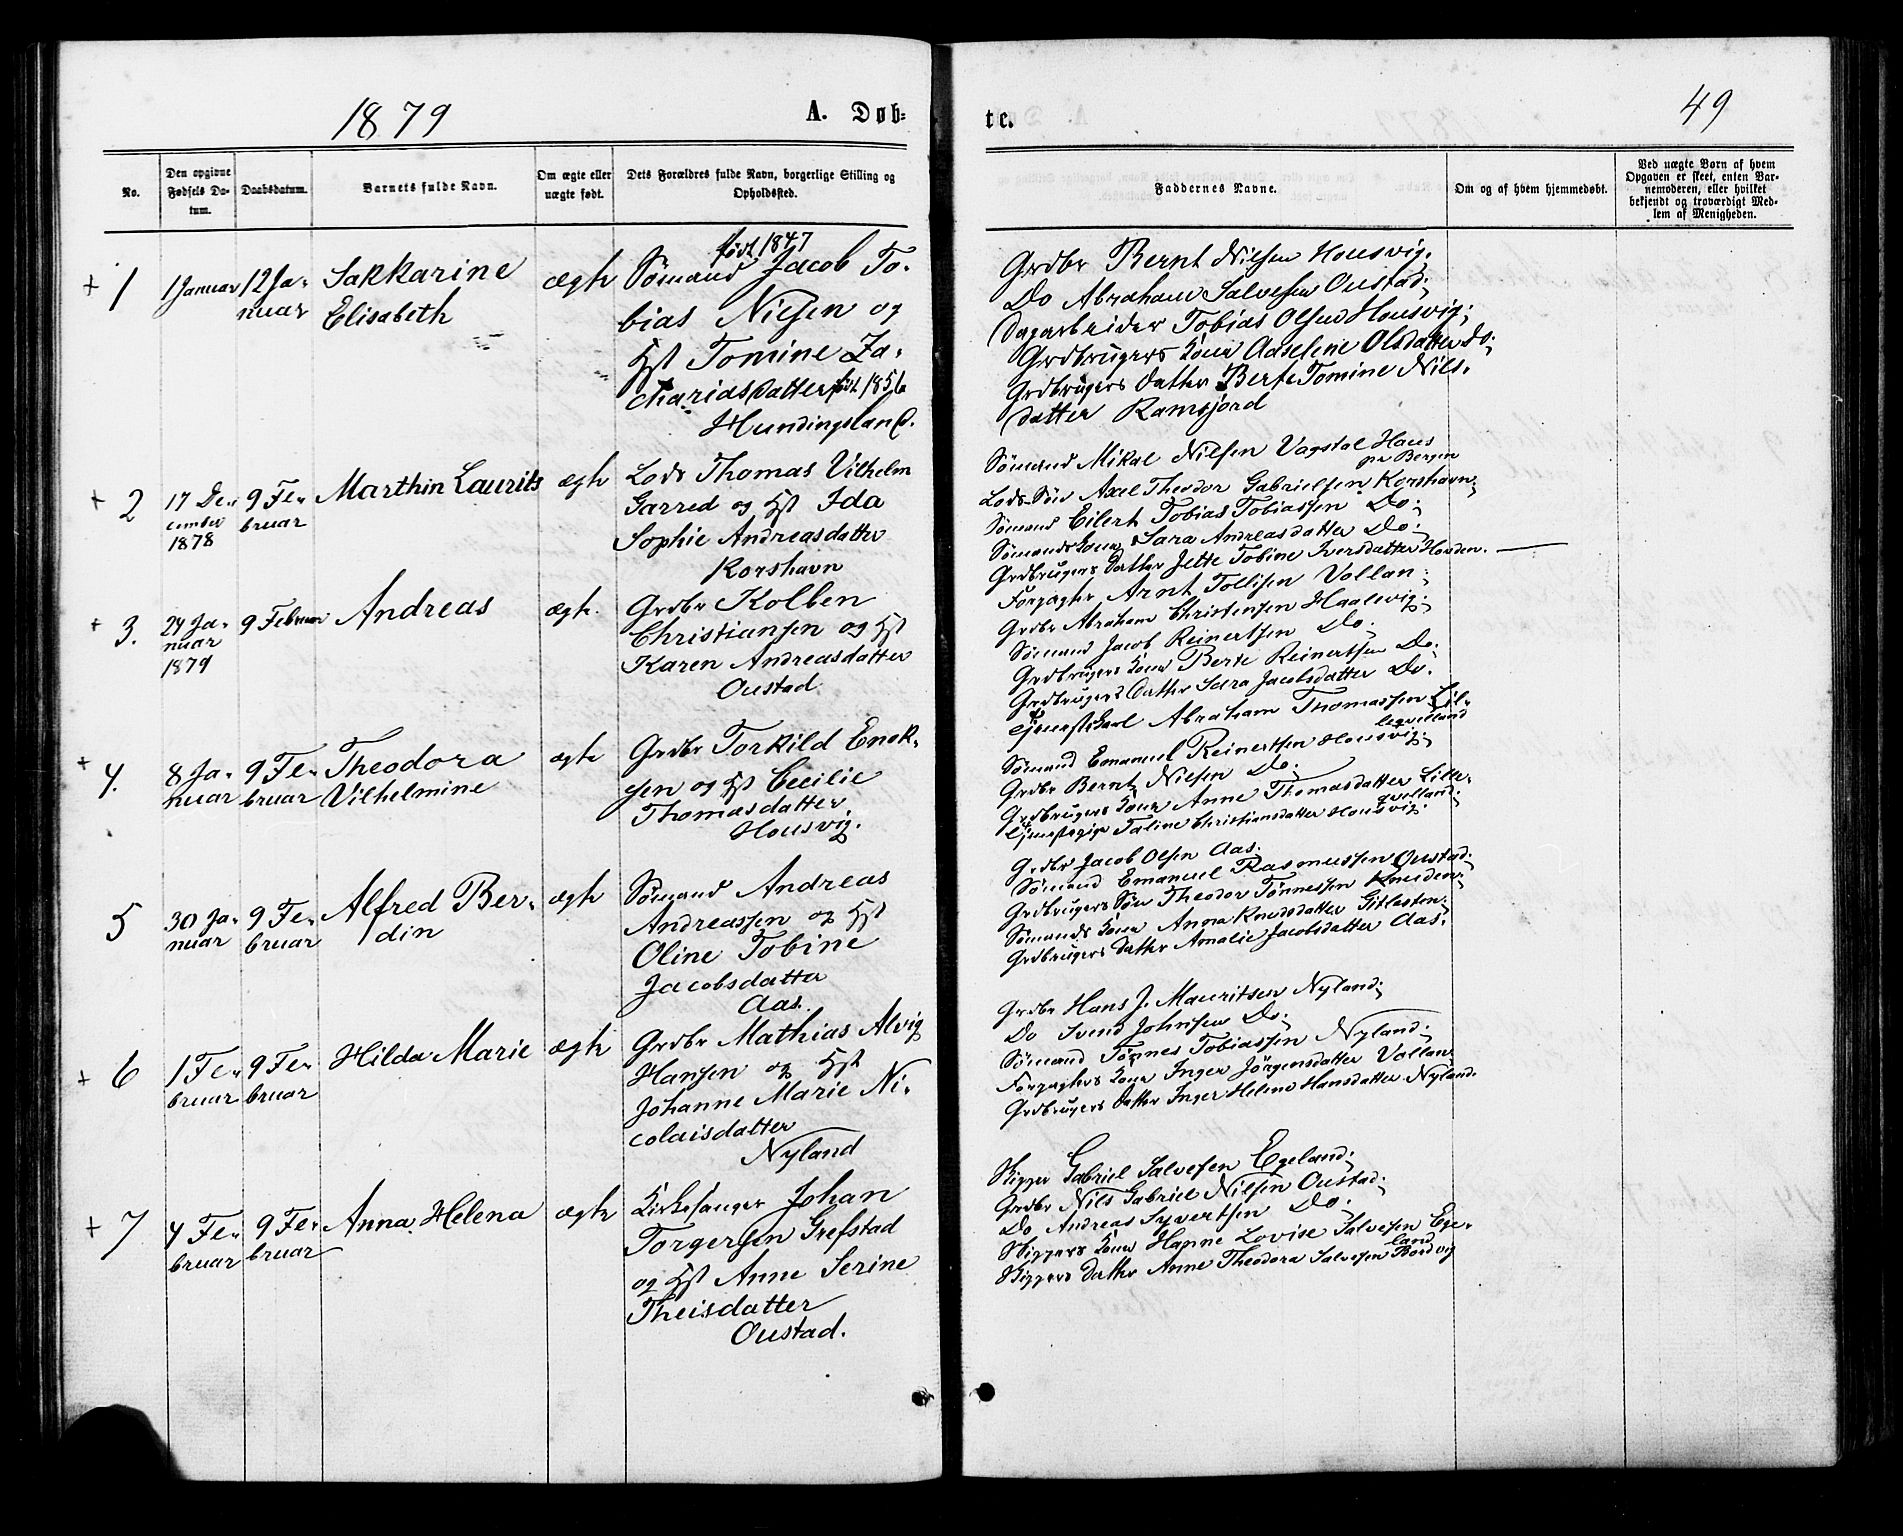 1879
A. Døb=
No.
Den opgivne Fødsels Datum.
Daabsdatum.
Barnets fulde Navn.
Om ægte eller uægte født.
Dets Forældres fulde Navn, borgerlige Stilling og Opholdssted.
+ 1
1 Januar
12 Ja-
nuar
Sakkarine
Elisabeth
ægte
født 1847
Sømand Jacob To-
bias Nilsen og
Hst Tomine Za-
chariasdatter født 1856
Hundingsland.
+ 2
17 De-
cember
1878
9 Fe-
bruar
Marthin Laurits
ægte
Lods Thomas Vilhelm
Garred og Hst Ida
Sophie Andreasdatter
Korshavn
+ 3.
24 Ja-
nuar
1879
9 Februar
Andreas
ægte.
Grdbr Kolben
Christiansen og Hst
Karen Andreasdatter
Oustad
+ 4.
8 Ja-
nuar
9 Fe-
bruar
Theodora
Vilhelmine
ægte
Grdbr Torkild Enok-
sen og Hst Cecilie
Thomasdatter
Housvig.
5
30 Ja-
nuar
9 Fe-
bruar
Alfred Ber-
din
ægte
Sømand Andreas
Andreassen og Hst
Oline Tobine
Jacobsdatter
Aas.
+ 6
1 Fe-
bruar
9 Fe-
bruar
Hilda Marie
ægte
Grdbr Mathias Alvig
Hansen og Hst
Johanne Marie Ni-
colaisdatter
Nyland
+ 7
4 Fe-
bruar
9 Fe-
bruar
Anna Helena
ægte
Kirkesanger Johan
Torgersen Grefstad
og Hst Anne Serine
Theisdatter
Oustad.
te.
49
Faddernes Navne.
Om og af hvem hjemmedøbt.
Ved uægte Børn af hvem
Opgaven er skeet, enten Bar-
nemoderen, eller hvilket
bekjendt og troværdigt Med-
lem af Menigheden.
Grdbr Bernt Nilsen Housvig;
Do Abraham Salvesen Oustad;
Dagarbeider Tobias Olsen Housvig;
Grdbrugers Kone Aaselene Olsdatter Do;
Grdbrugers Datter Berte Tomine Nils-
datter Ramsjord
Sømand Mikal Nilsen Vagstal Haus
pr Bergen
Lods-Søn Axel Theodor Gabrielsen Korshavn;
Sømand Eilert Tobias Tobiassen Do;
Sømands Kone Sara Andreasdatter Do;
Grdbrugers Datter Jette Tobine Iversdatter Houden.
Forpagter Arnt Tollisen Vollan;
Grdbr Abraham Christensen Haalevig;
Sømand Jacob Reinertsen Do;
Grdbrugers Kone Berte Reinertsen Do;
Grdbrugers Datter Sara Jacobsdatter Do.
Tjenestekarl Abraham Thomassen Lil-
leqvelland
Sømand Emanuel Reinertsen Housvig;
Grdbr Bernt Nilsen Do;
Grdbrugers Kone Anne Thomasdatter Lille-
qvelland;
Tjenestepige Taline Christiansdatter Housvig.
Grdbr Jacob Olsen Aas;
Sømand Emanuel Rasmussen Oustad;
Grdbrugers Søn Theodor Tønnessen Knuden;
Sømands Kone Anna Knudsdatter Gitlesten;
Grdbrugers Datter Amalie Jacobsdatter Aas.
Grdbr Hans J. Mauritsen Nyland;
Do Svend Johnsen Do;
Sømand Tønnes Tobiassen Nyland;
Forpagters Kone Inger Jörgensdatter Vollan;
Grdbrugers Datter Inger Helene Hansdatter Nyland.
Skipper Gabriel Salvesen Egeland;
Grdbr Nils Gabriel Nilsen Oustad;
Do Andreas Syvertsen Do;
Skippers Kone Hanne Lovise Salvesen Ege-
land
Skippers Datter Anne Theodora Salvesen